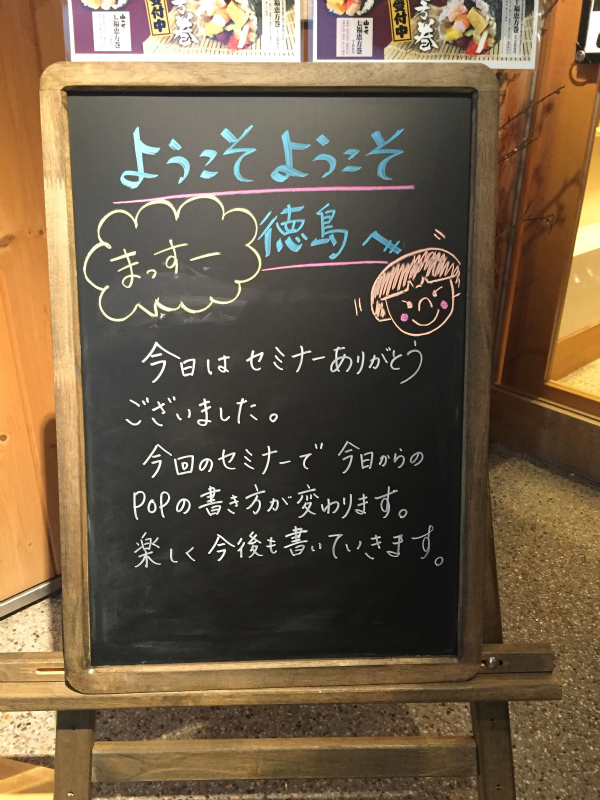 受付中
七福恵方巻
受付中
七福恵方巻
ようこそ ようこそ
徳島へ
まっすー
今日は セミナーありがとう
ございました。
今回のセミナーで 今日からの
POPの書き方が変わります。
楽しく 今後も書いていきます。